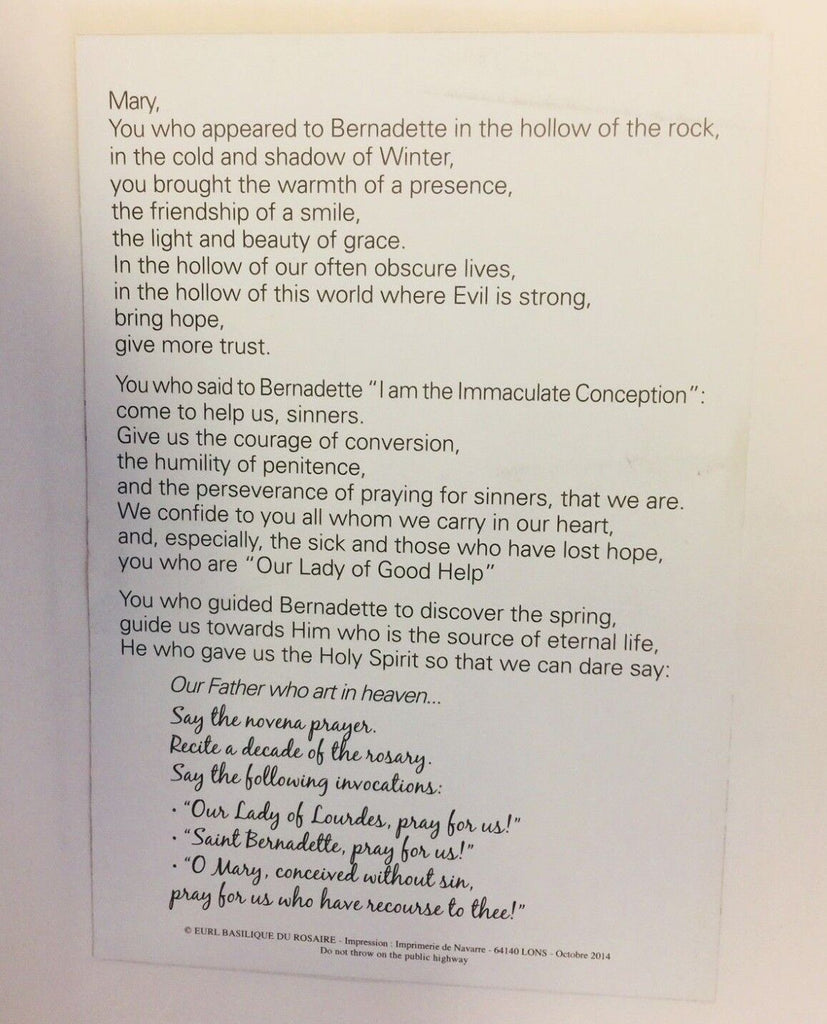 Mary,
You who appeared to Bernadette in the hollow of the rock,
in the cold and shadow of Winter,
you brought the warmth of a presence,
the friendship of a smile,
the light and beauty of grace.
In the hollow of our often obscure lives,
in the hollow of this world where Evil is strong,
bring hope,
give more trust.
You who said to Bernadette “I am the Immaculate Conception”:
come to help us, sinners.
Give us the courage of conversion,
the humility of penitence,
and the perseverance of praying for sinners, that we are.
We confide to you all whom we carry in our heart,
and, especially, the sick and those who have lost hope,
you who are “Our Lady of Good Help”
You who guided Bernadette to discover the spring,
guide us towards Him who is the source of eternal life,
He who gave us the Holy Spirit so that we can dare say:
Our Father who art in heaven...
Say the novena prayer.
Recite a decade of the rosary.
Say the following invocations:
• “Our Lady of Lourdes, pray for us!”
• “Saint Bernadette, pray for us!”
• “O Mary, conceived without sin,
pray for us who have recourse to thee!”
© EURL BASILIQUE DU ROSAIRE - Impression : Imprimerie de Navarre - 64140 LONS - Octobre 2014
Do not throw on the public highway